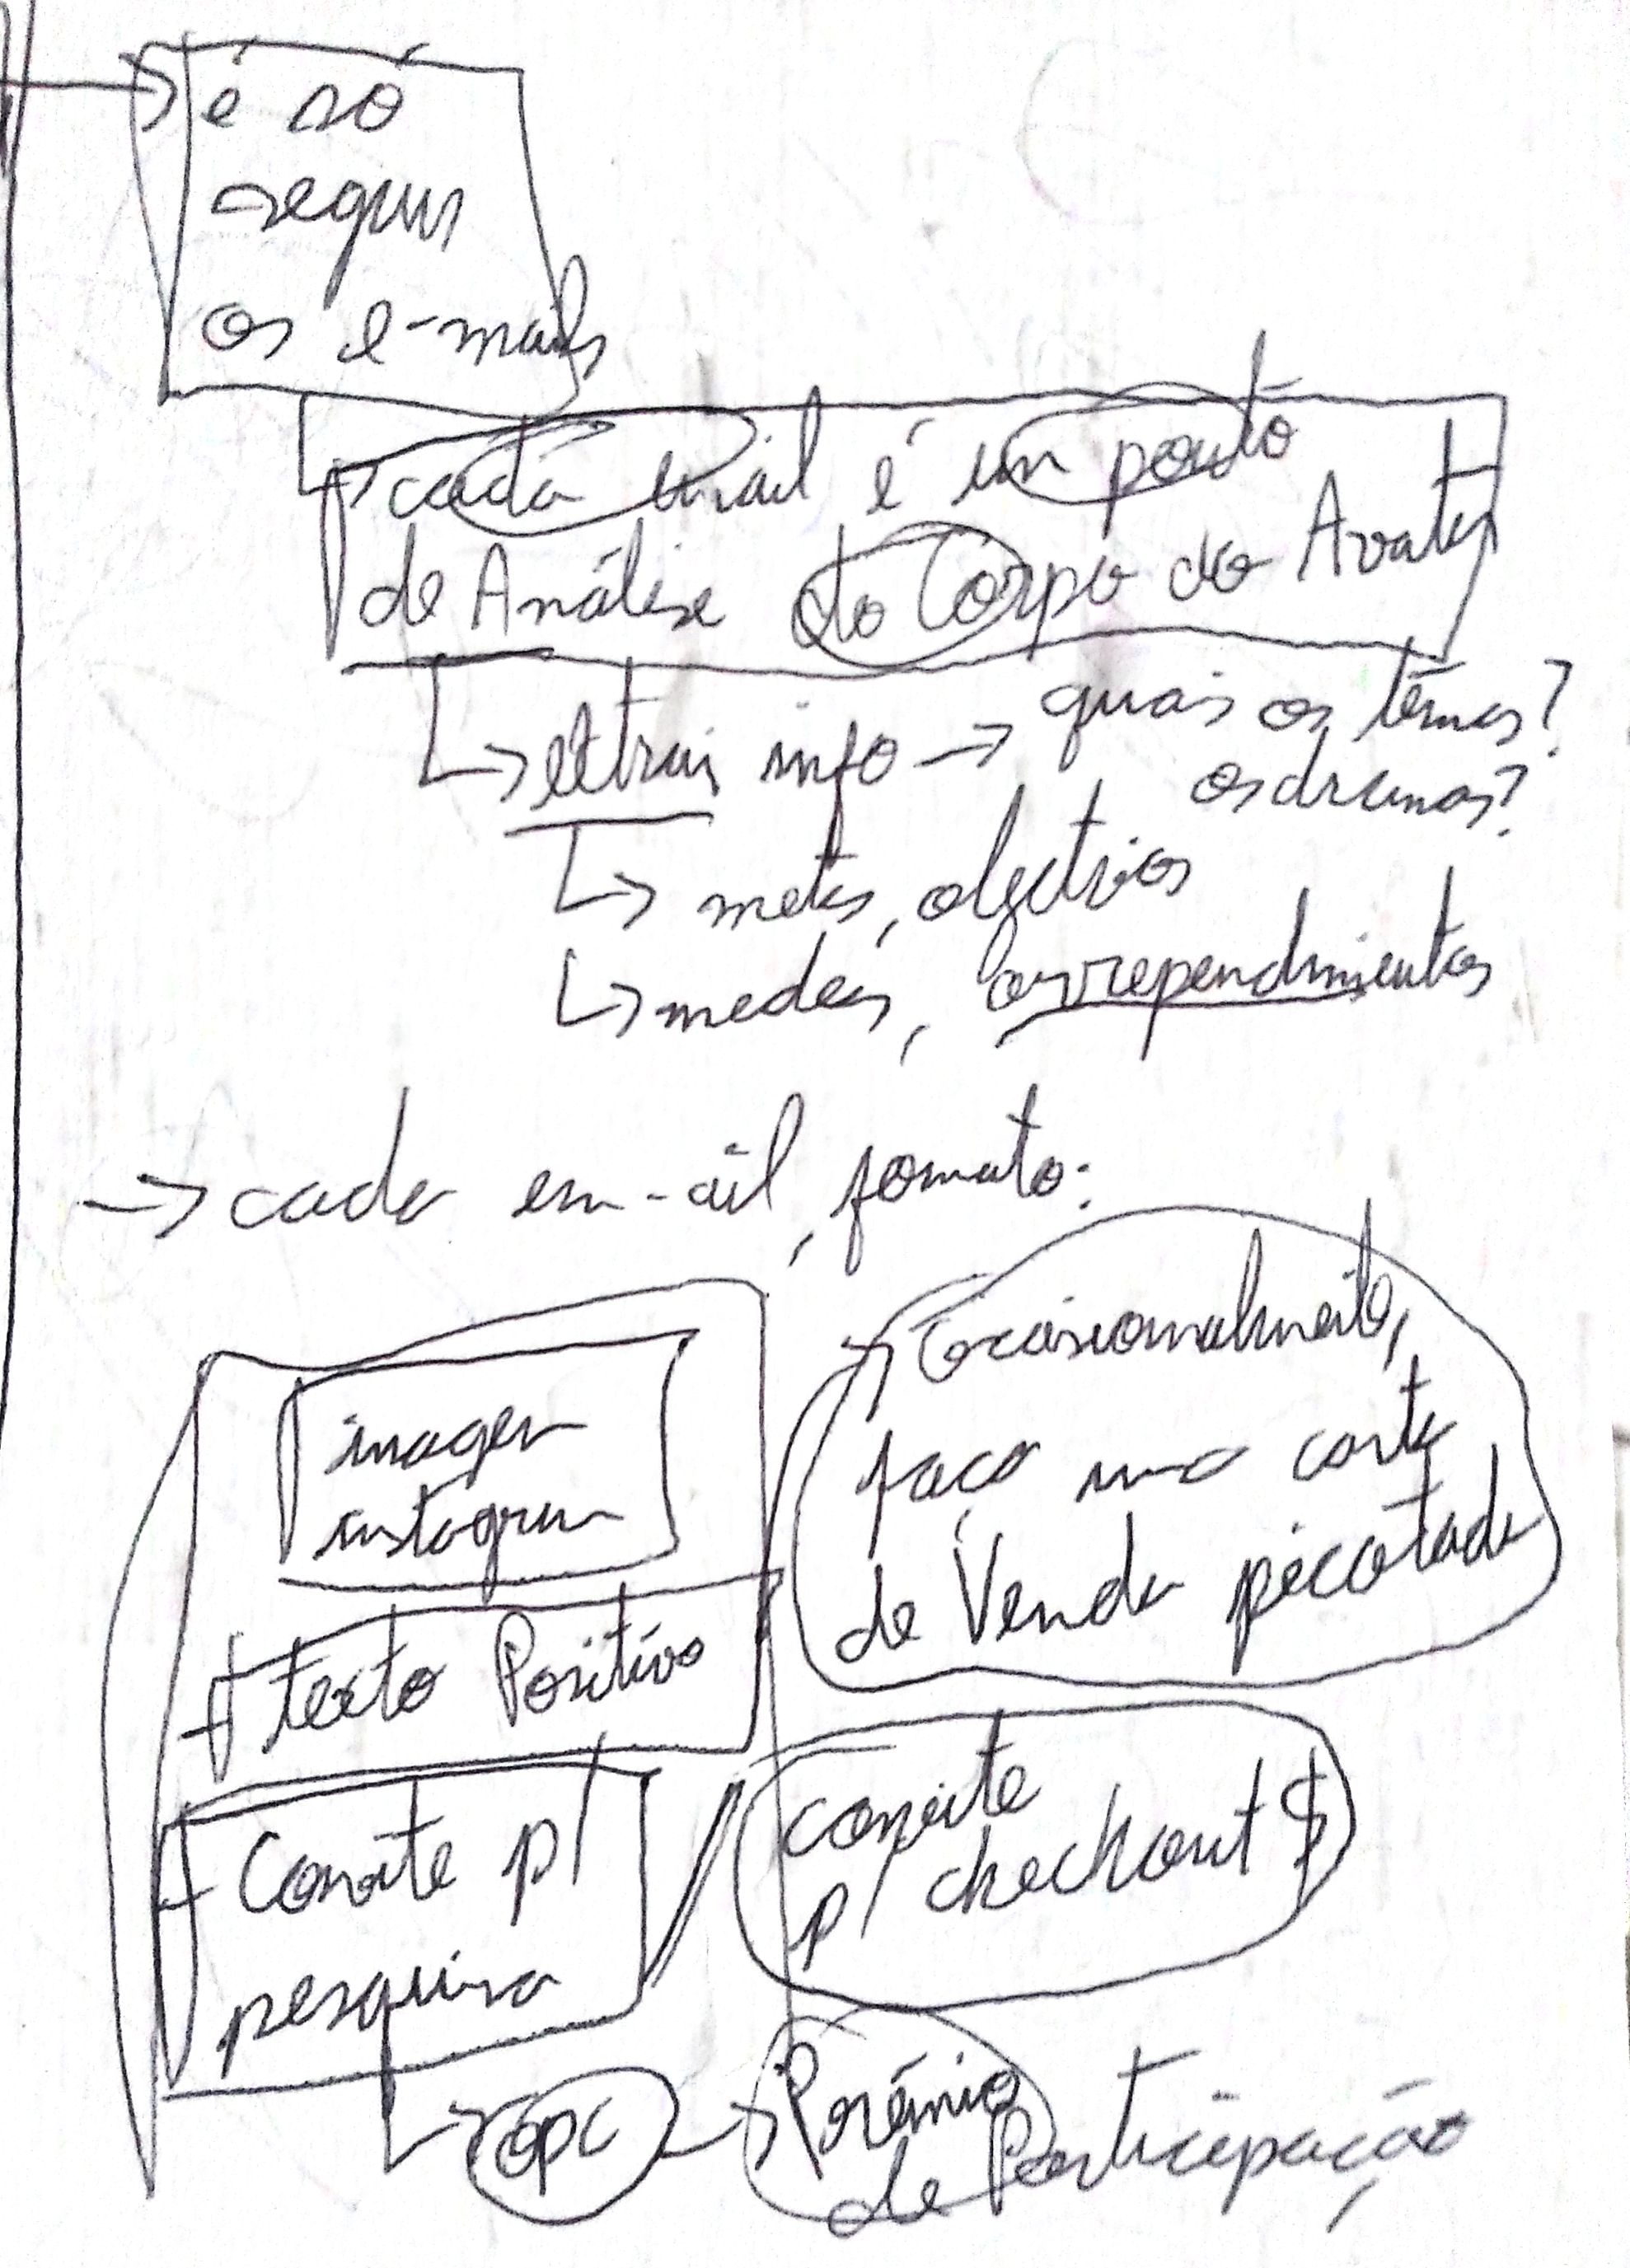 é só
seguir
os e-mails
cada email é um ponto
de Análise do Corpo do Avatar
extrair info → quais os temas?
os dramas?
metas, objectivos
medos, arrependimentos
→ cada em-ail, formato:
imagem
instagram
+ texto Positivo
+ Convite p/
pesquisa
opc → Prémio
de Participação
→ Ocasionalmente,
faço uma carta
de Venda picotada
convite
p/ checkout $